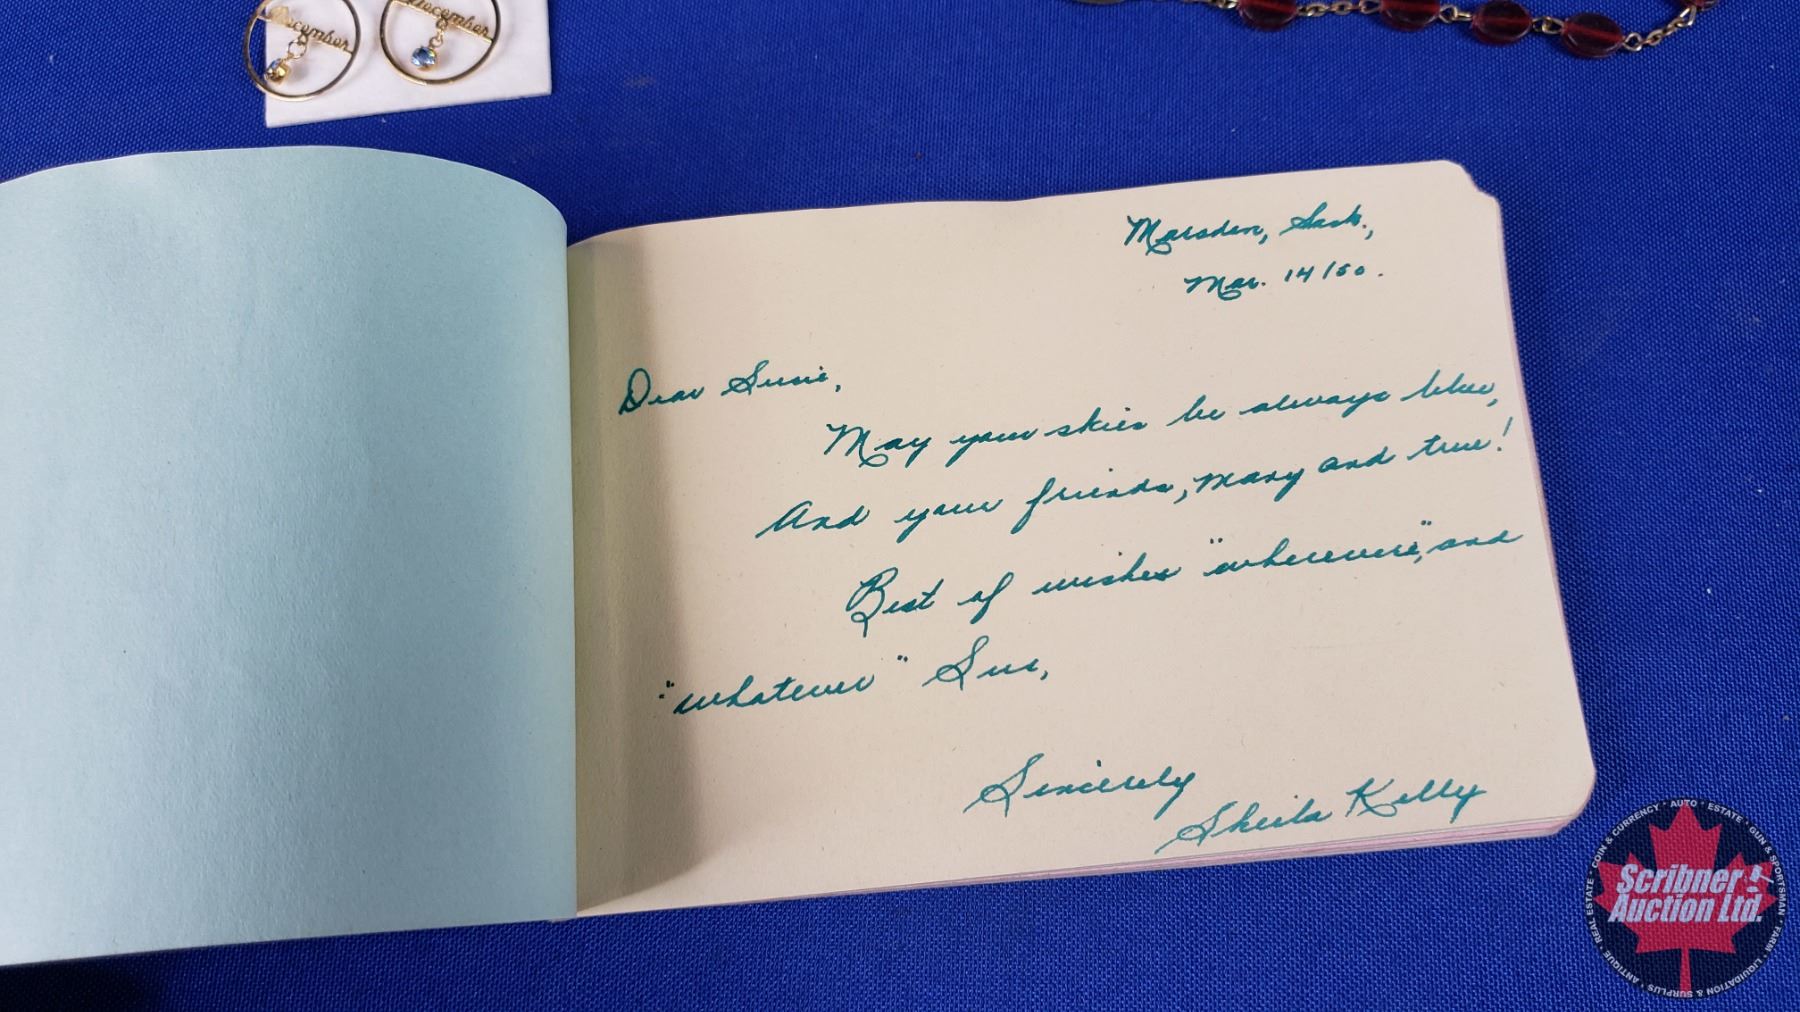 December
December
Marsden, Sask.,
Mar. 14/50.
Dear Susie,
May your skies be always blue,
And your friends, many and true!
Best of wishes "wherever", and
"whatever" Sue,
Sincerely
Sheila Kelly
COIN & CURRENCY • AUTO • ESTATE • GUN & SPORTSMAN • FARM • LIQUIDATION & SURPLUS • ANTIQUE • REAL ESTATE •
Scribner
Auction Ltd.